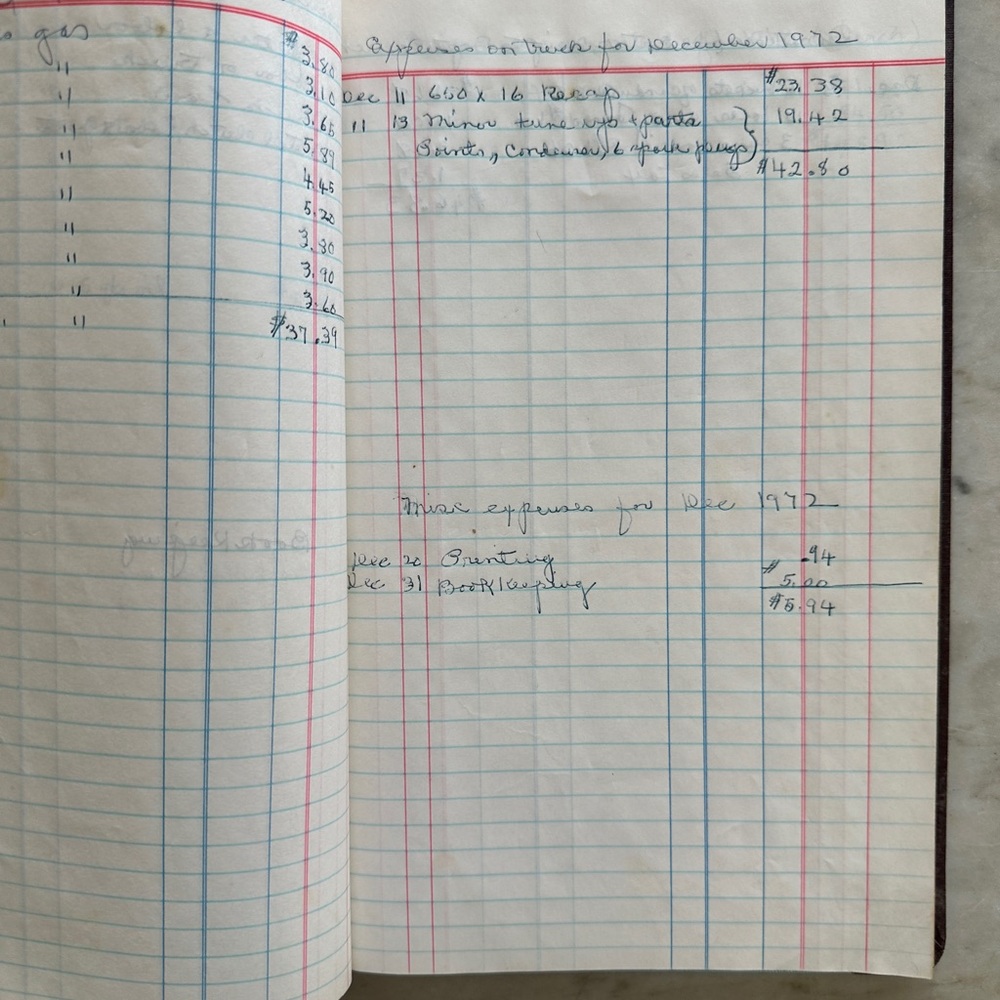 gas
"
"
"
"
"
"
"
"
"
$3.80
3.10
3.65
5.89
4.45
5.20
3.30
3.90
3.60
$37.39
Expenses on truck for December 1972
Dec 11 650 x 16 Recap $23.38
" 13 Minor tune up + parts 19.42
Points, Condenser, 6 spark plugs
$42.80
Misc expenses for Dec 1972
Dec 20 Printing .94
Dec 31 Bookkeeping $5.00
$5.94